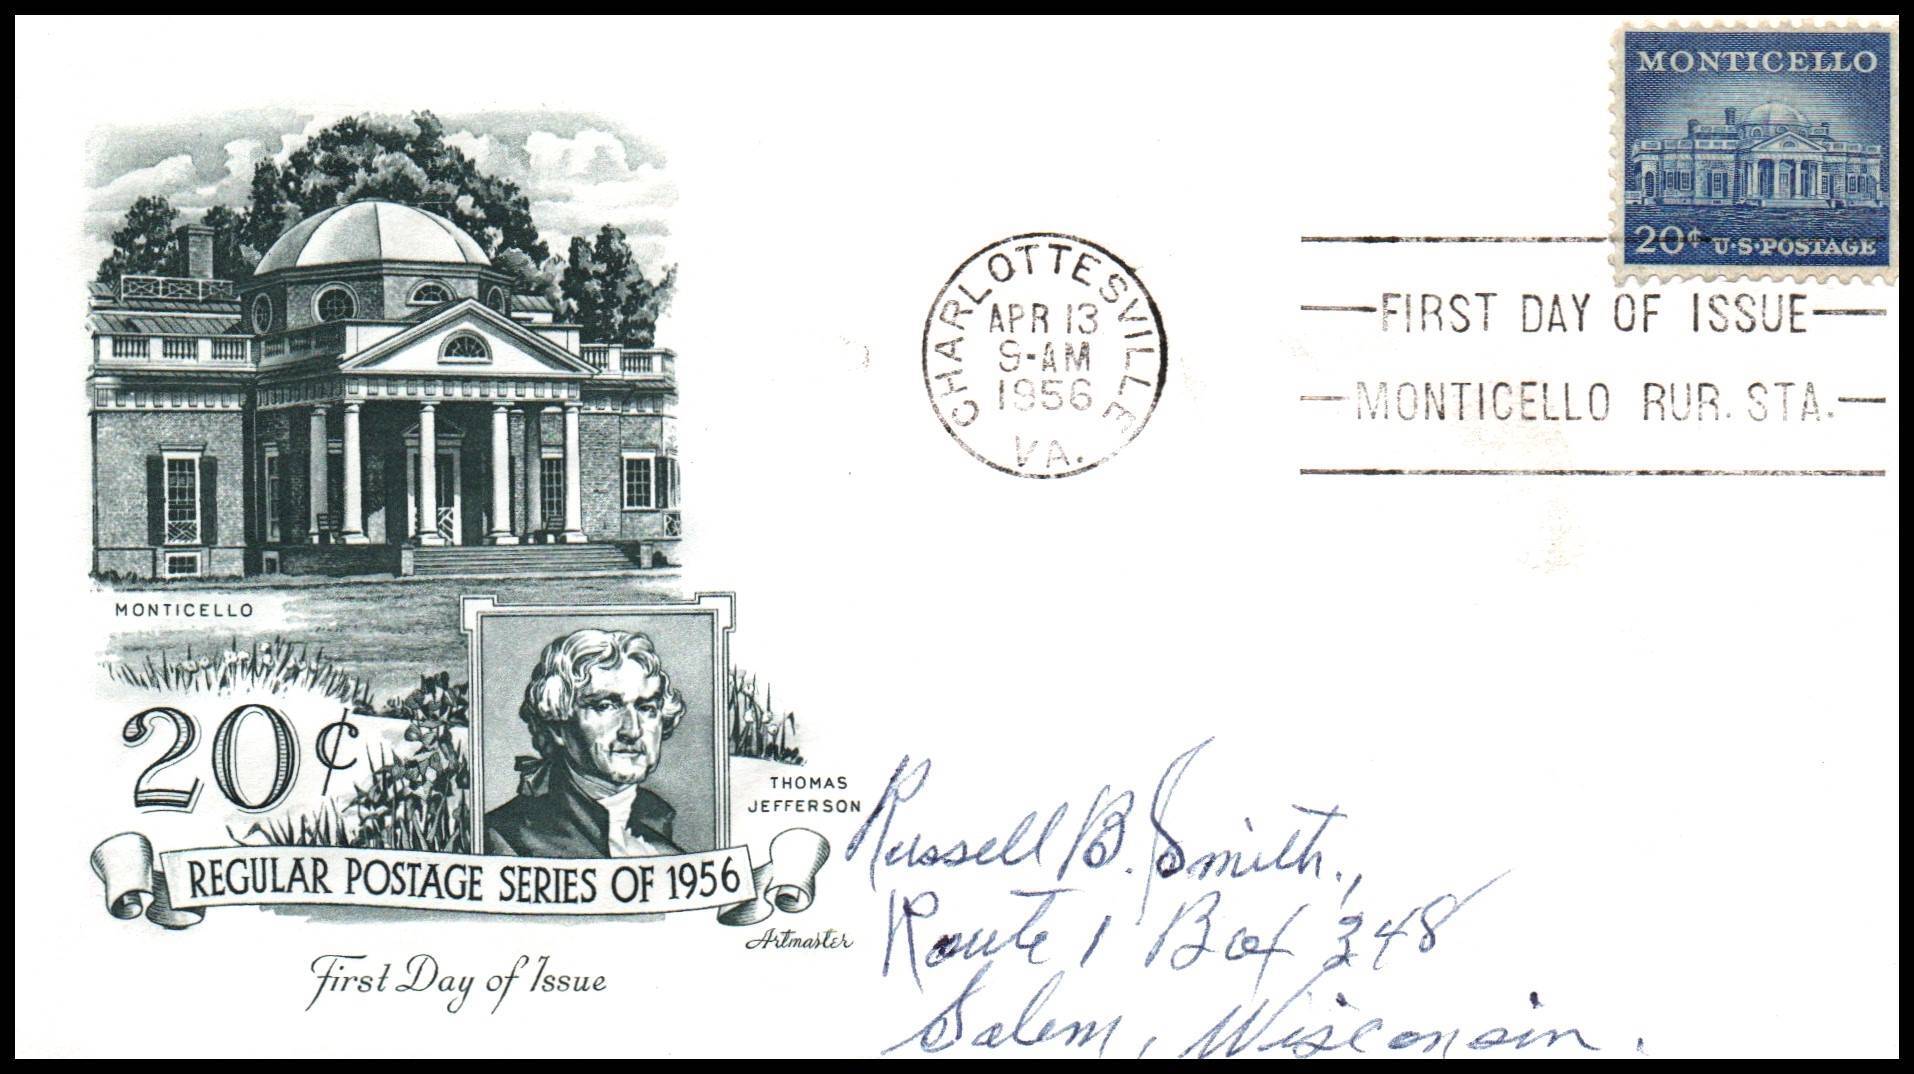 MONTICELLO
20¢ U·S·POSTAGE
CHARLOTTESVILLE
APR 13
9-AM
1956
VA.
FIRST DAY OF ISSUE
MONTICELLO RUR. STA.
MONTICELLO
20¢
THOMAS
JEFFERSON
REGULAR POSTAGE SERIES OF 1956
Artmaster
First Day of Issue
Russell B. Smith,
Route 1 Box 348
Salem, Wisconsin.